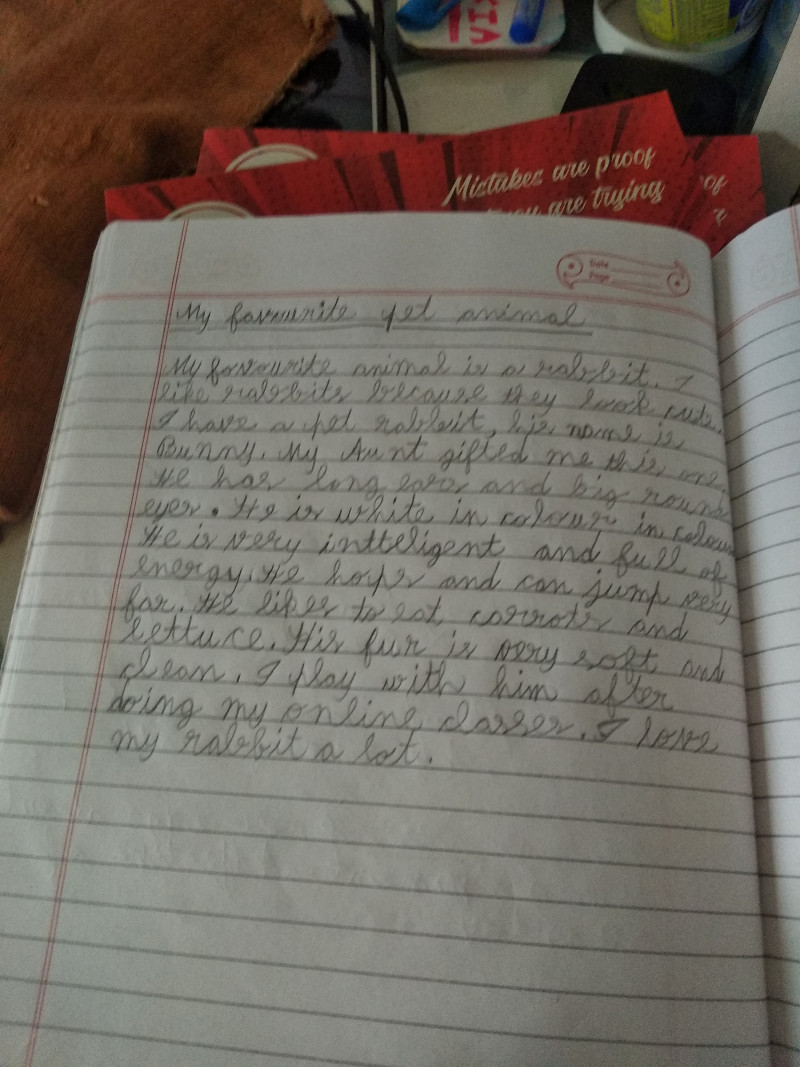 VIX
Mistakes are proof
you are trying
of
Date
Page
My favourite pet animal
My favourite animal is a rabbit. I
like rabbits because they look cute.
I have a pet rabbit, his name is
Bunny. My Aunt gifted me this one.
He has long ears and big round
eyes. He is white in colour in colour
He is very intteligent and full of
energy. He hops and can jump very
far. He likes to eat carrots and
lettuce. His fur is very soft and
clean. I play with him after
doing my online classes. I love
my rabbit a lot.